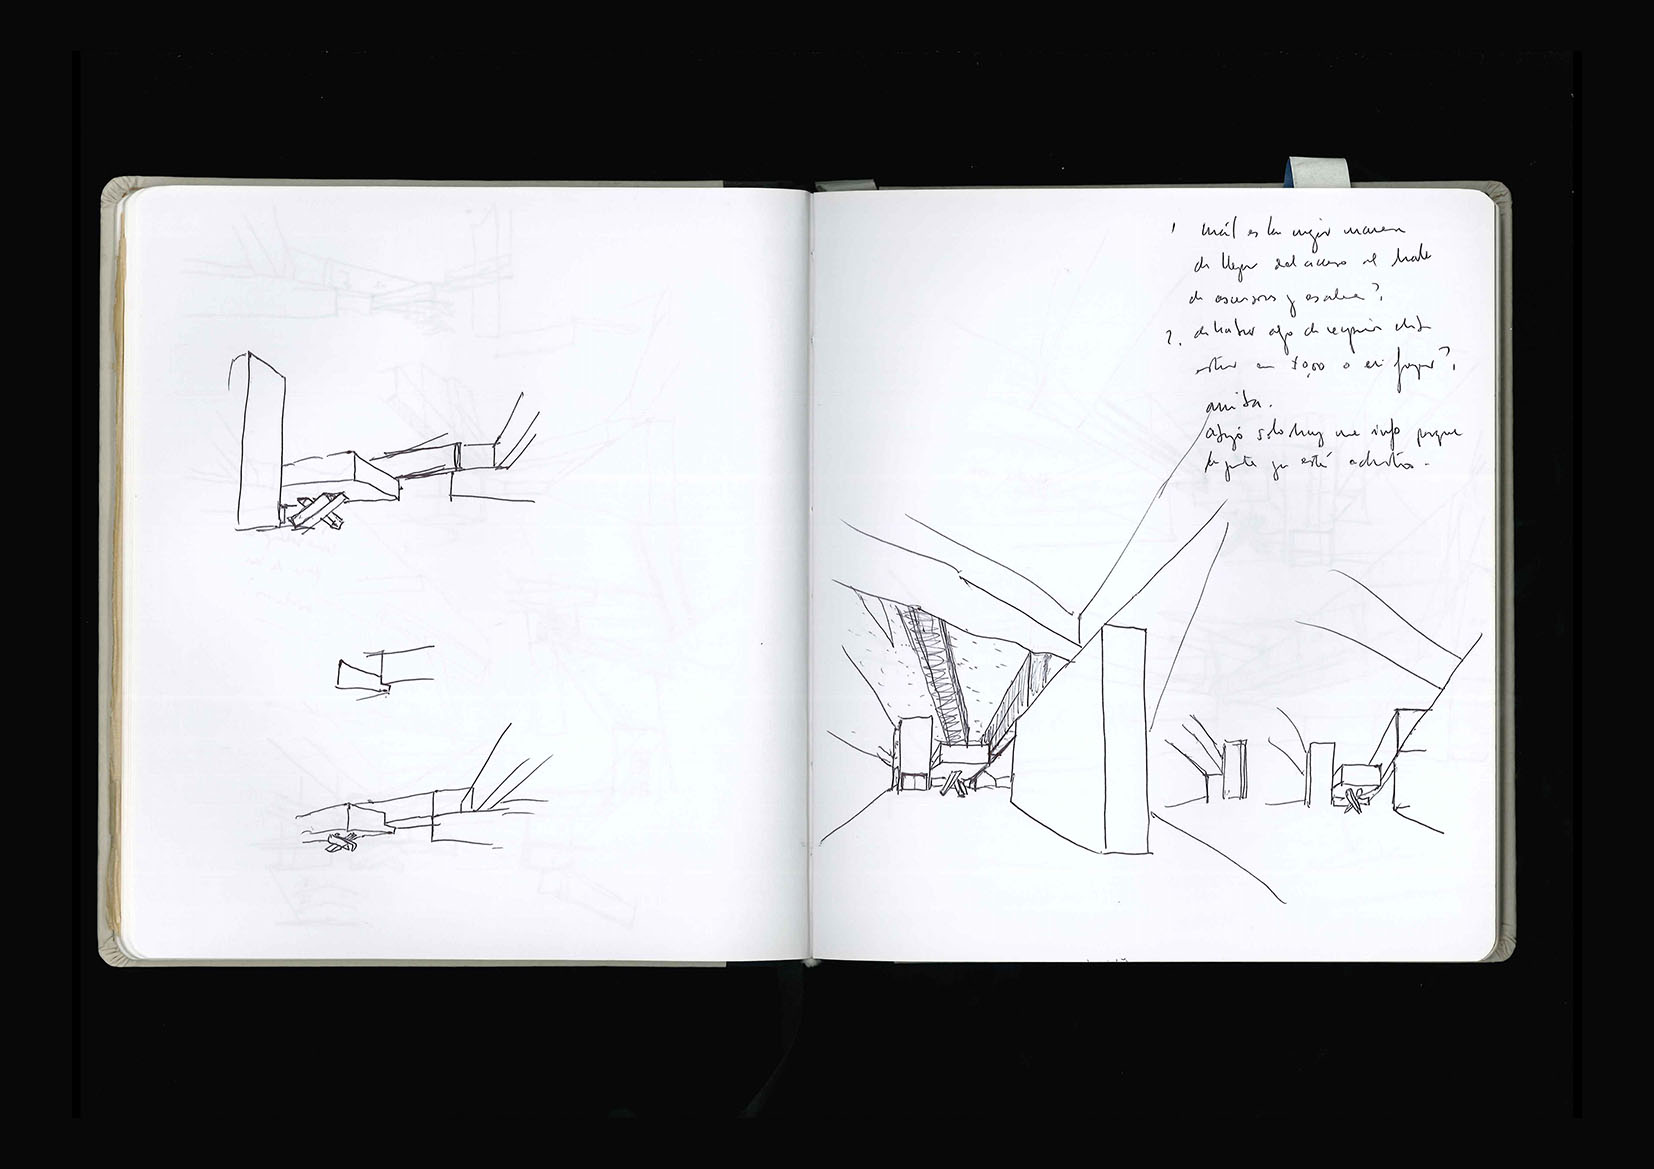 1 cuál es la mejor manera
de llegar del acceso al hall
de ascensores y escalera?
2. de haber algo de
estar en +0,00 o en foyer?
arriba.
abajo solo hay una info porque
la gente ya está adentro.